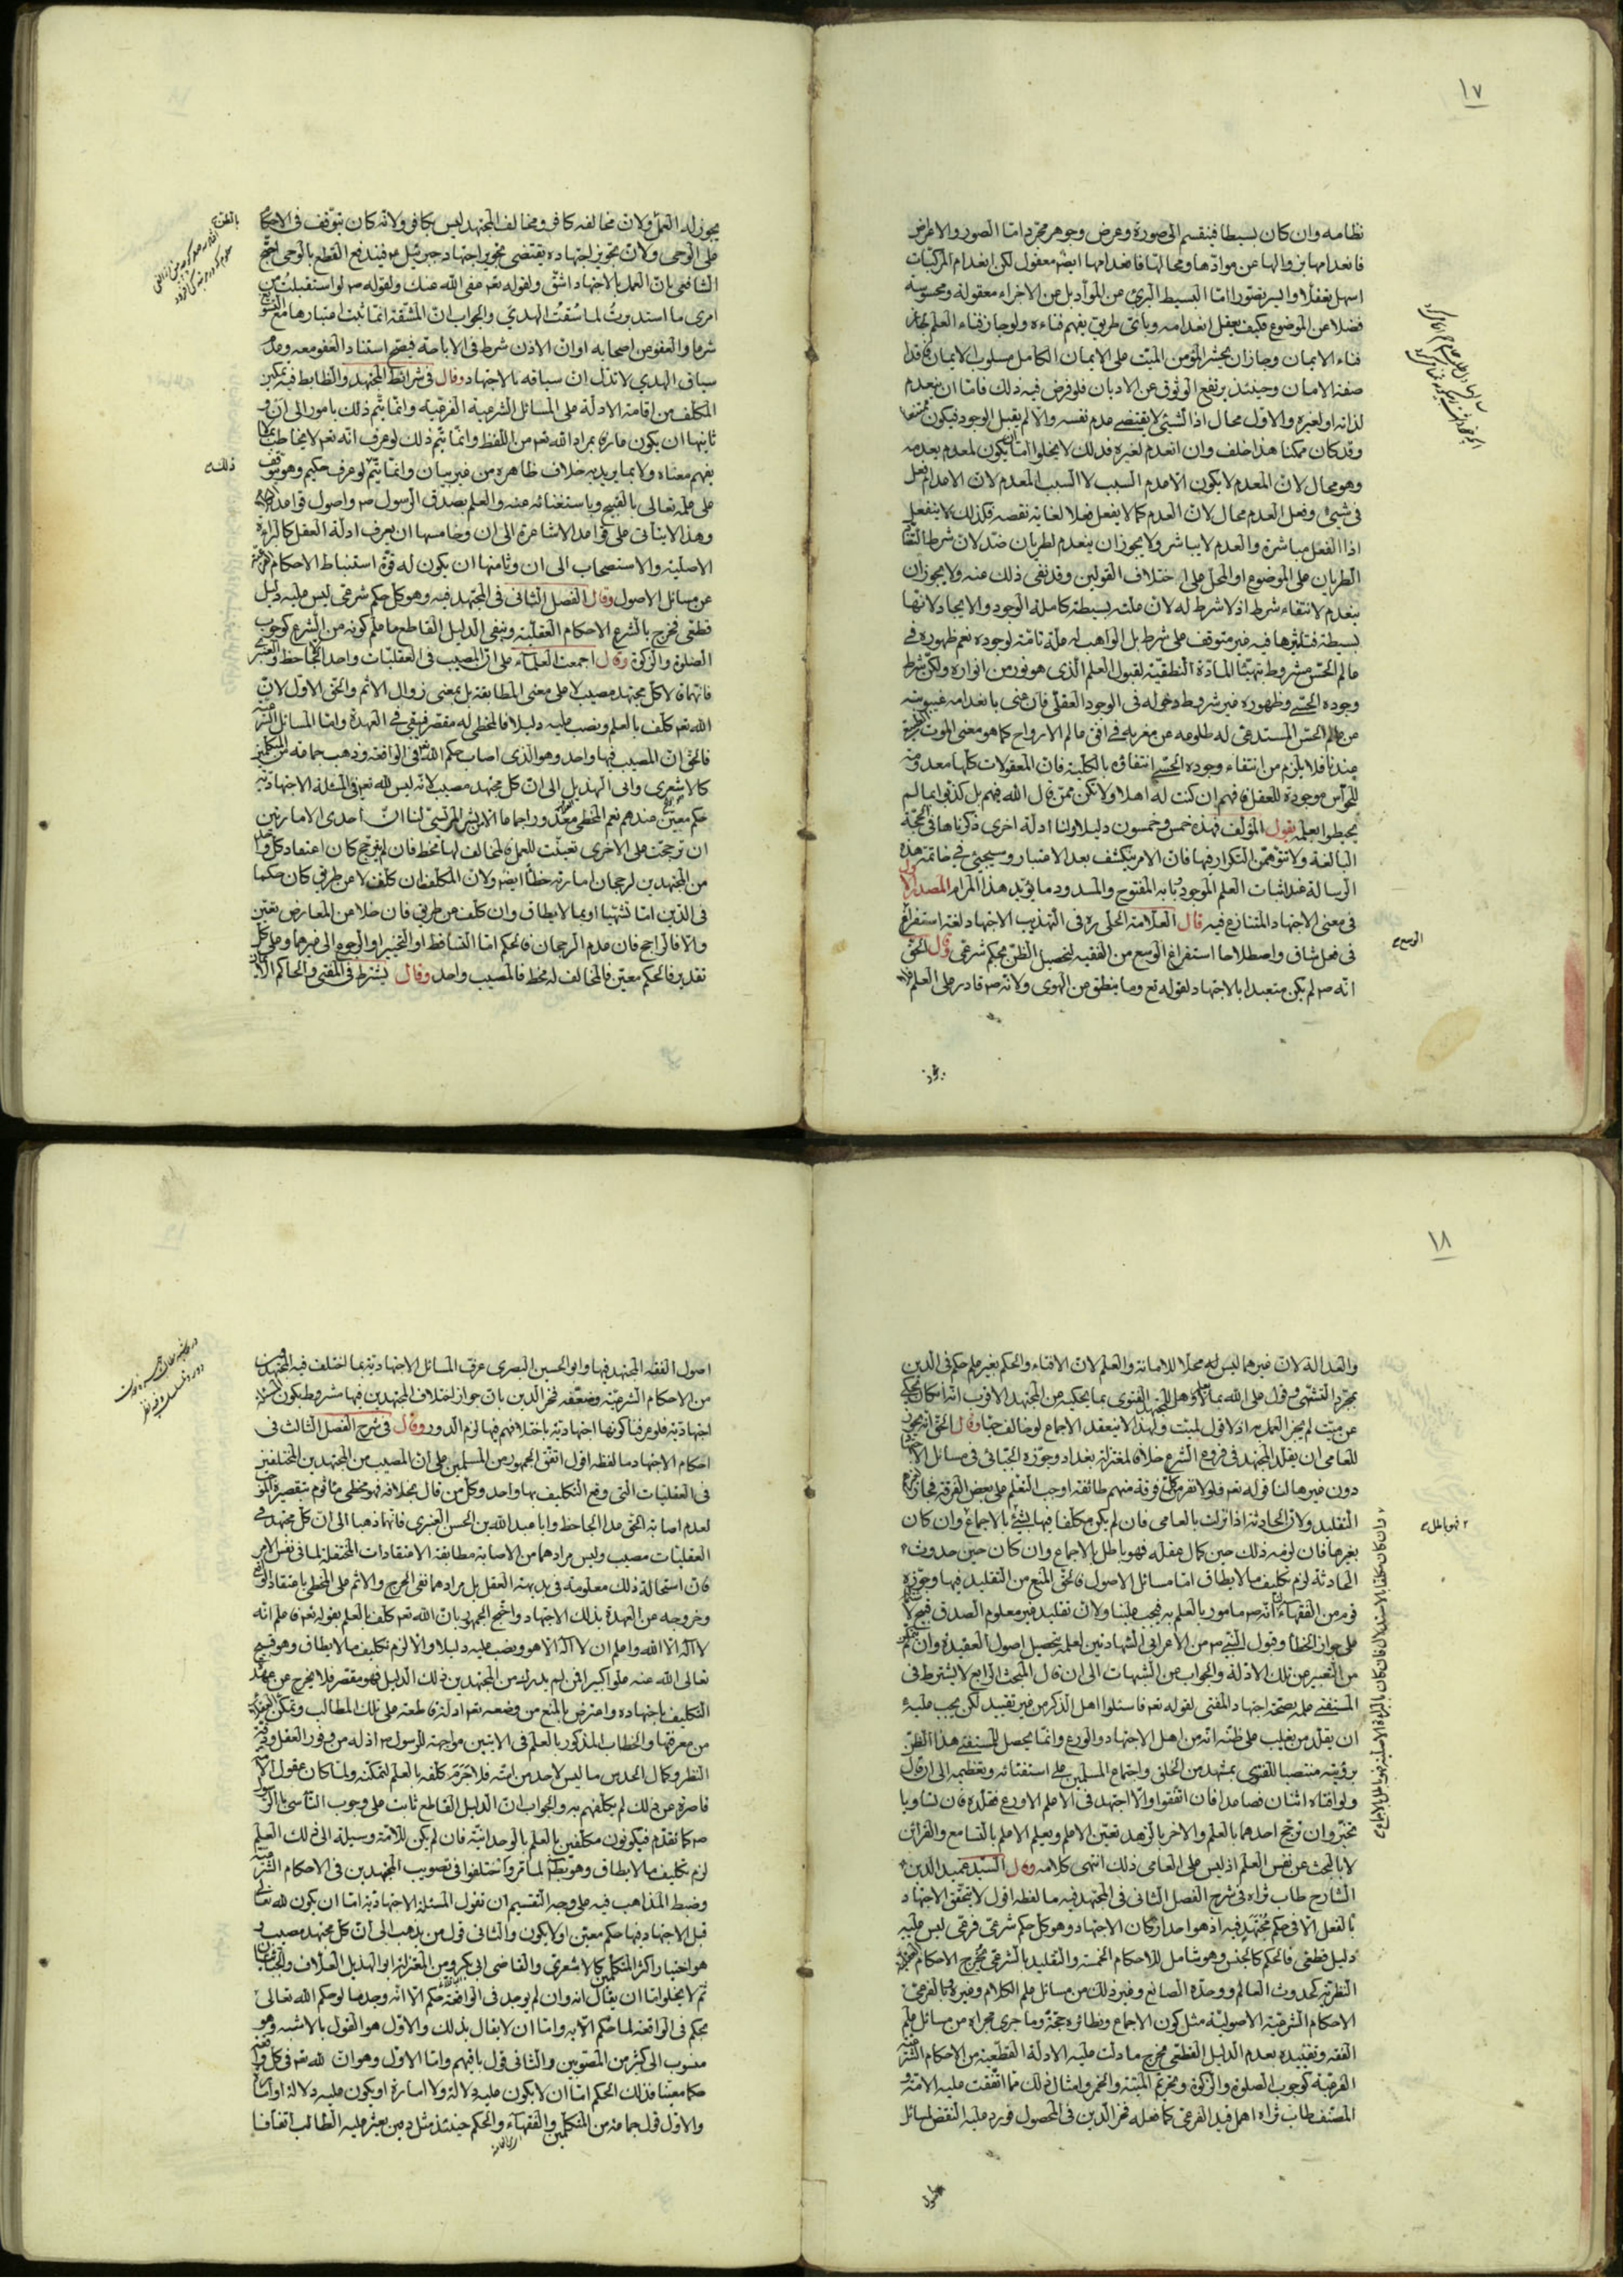 ١٧
نظامه وان كان بسيطا فينقسم الى صورة وعرض وجوهر مجرد امّا الصور والاعراض
فانعدامها بزوالها عن موادّها ومحالّها فانعدامها ايضا معقول لكن انعدام المركّبات
اسهل تعقّلا وايسر تصوّرا امّا البسيط البرئ عن الموادّ بل عن الاجزاء معقولة ومحسوسة
فضلا عن الموضوع فكيف يعقل انعدامه وبأىّ طريق يفهم فناءه ولو جاز فناء العلم لجاز
فناء الايمان وجاز ان يحشر المؤمن الميّت على الايمان الكامل مسلوب الايمان
صفة الامان وحينئذ يرتفع الوثوق عن الاديان فلو فرض فيه ذلك فامّا ان ينعدم
لذاته او لغيره والاول محال اذ الشئ لا يقتضى عدم نفسه والّا لم يقبل الوجود فيكون ممتنعا
وقد كان ممكنا هذا خلف وان انعدم لغيره فذلك لا يخلوا امّا ان يكون لمعدم يعدمه
وهو محال لانّ المعدم لا يكون الّا عدم السبب لا السبب المعدم لانّ الاعدام فعل
فى شئ وفعل العدم محال لانّ العدم كما لا يفعل فعلا لغاية نقصه فكذلك لا ينفعل
اذ الفعل مباشرة والعدم لا يباشر ولا يجوز ان ينعدم لطريان ضدّ لانّ شرط
الطريان على الموضوع او المحلّ على اختلاف القولين وقد نفى ذلك عنه ولا يجوز ان
ينعدم لانتفاء شرط اذ لا شرط له لانّ علّته بسيطة كاملة الوجود والايجاد لانّها
بسيطة فتأثيرها فيه غير متوقف على شرط بل الواهب له علّة تامّة لوجوده نعم ظهوره فى
عالم الحسّ مشروط بتهيّئا المادّة النطقيّة لقبول العلم الّذى هو نور من انواره ولكن شرط
وجوده الحسّى وظهوره غير شروط دخوله فى الوجود العقلى فان عنى بانعدامه غيبوبته
عن عالم الحسّ المستدعى له طلوعه من مغربه فى افق عالم الارواح كما هو معنى الموت
عندنا فلا يلزم من انتفاء وجوده الحسّى انتفاؤه بالكلّيّة فانّ المعقولات كلّها معدومة
للحواسّ موجودة للعقل فافهم ان كنت له اهلا ولا تكن ممّن قال الله فيهم بل كذّبوا بما لم
يحيطوا بعلمه يقول المؤلّف فهذه خمس وخمسون دليلا ولنا ادلّة اخرى ذكرناها فى الحجّة
البالغة ولا تتوهّمنّ التكرار فيها فانّ الامر ينكشف بعد الاعتبار وسيجئ فى خاتمة هذه
الرسالة عند اثبات العلم الموجود بابه المفتوح والمسدود ما يؤيّد هذا المرام المصدر الاول
فى معنى الاجتهاد المتنازع فيه قال العلّامة الحلّى ره فى التهذيب الاجتهاد لغة استفراغ الوسع
فى فعل شاق واصطلاحا استفراغ الوسع من الفقيه لتحصيل الظنّ بحكم شرعى وقال الحق
انّه ص لم يكن متعبدا بالاجتهاد لقوله تع وما ينطق عن الهوى ولانّه ص قادر على العلم فلا
يجوز
يجوز له العمل ولانّ مخالفه كافر ومخالف المجتهد ليس بكافر ولانّه كان يتوقّف فى الاحكام
على الوحى ولانّ تجويز اجتهاده يقتضى تجويز اجتهاد جبرئيل ع فيندفع القطع بالوحى احتجّ
الشافعى بانّ العمل بالاجتهاد اشقّ ولقوله تعم عفى الله عنك ولقوله ص لو استقبلت من
امرى ما استدبرت لما سُقت الهدي والجواب انّ المشقّة انّما تثبت اعتبارها مع
شرعا والعفو عن اصحابه او انّ الاذن شرط فى الاباحة فيصحّ استناد العفو معه وعدم
سياق الهدي لا تدلّ انّ سياقه بالاجتهاد وقال فى شرائط المجتهد والضابط فيه تمكّن
المكلّف من اقامة الادلّة على المسائل الشرعية الفرعيّة وانّما يتمّ ذلك بامور الى ان و
ثانيها ان يكون عارفا بمراد الله تعم من اللفظ وانّما يتمّ ذلك لو عرف انّه تعم لا يخاطب بما لا
يفهم معناه ولا بما يريد به خلاف ظاهره من غير بيان وانّما يتمّ لو عرف حكيم وهو يتوقف ذلك
على علمه تعالى بالقبيح وباستغنائه عنه والعلم بصدق الرسول ص واصول قواعد
وهذا لا يتأتى على قواعد الاشاعرة الى ان وخامسها ان يعرف ادلّة العقل كالبراءة
الاصليّة والاستصحاب الى ان وثامنها ان يكون له قوّة استنباط الاحكام الفرعيّة
عن مسائل الاصول وقال الفصل الثانى فى المجتهد فيه وهو كل حكم شرعى ليس عليه دليل
قطعى فخرج بالشرع الاحكام العقليّة وبنفى الدليل القاطع ما علم كونه من الشرع كوجوب
الصلوة والزكوة وقال اجمعت العلماء على انّ المصيب فى العقليّات واحد الّا الجاحظ والعنبرى
فانّهما قالا كلّ مجتهد مصيب لا على معنى المطابقة بل بمعنى زوال الاثم والحقّ الاوّل لانّ
الله تعم كلّف بالعلم ونصب عليه دليلا فالمخطى له مقصّر فيبقى فى العهدة وامّا المسائل الشرعية
فالحقّ انّ المصيب فيها واحد وهو الّذى اصاب حكم الله تعم فى الواقعة وذهب جماعة من المتكلّمين
كالاشعرى وابى الهذيل الى انّ كلّ مجتهد مصيب لانّه ليس لله تعم فى المسئلة الاجتهاديّة
حكم معيّن عندهم نعم المخطى معذور اجماعا الّا بشر المريسى لنا انّ احدى الامارتين
ان ترجّحت على الاخرى تعيّنت للعمل فالمخالف لها مخطى فان لم يترجّح كان اعتقاد كل واحد
من المجتهدين لرجحان امارته خطأ ايضا ولانّ المكلّف ان كلّف لا عن طريق كان حكما
فى الدّين امّا تشهّيا او بما لا يطاق وان كلّف عن طريق فان خلا عن المعارض تعيّن
والّا فالراجح فان عدم الرجحان فالحكم امّا التساقط او التخيير او الرجوع الى غيرها وعلى كل
تقدير فالحكم معيّن فالمخالف له مخط فالمصيب واحد وقال يشترط فى المفتى والحاكم الايمان
١٨
والعدالة لانّ غيرهما ليس له محلّا للامانة والعلم لانّ الافتاء والحكم بغير علم حكم فى الدّين
بمجرّد التشهّى وقول على الله بما لا يعلم وهل للمجتهد الفتوى بما يحكيه عن المجتهد الاقرب انّه ان كان يحكى
عن ميّت لم يجز العمل به اذ لا قول لميّت ولهذا لا ينعقد الاجماع لو خالف حيّا وقال الحقّ انّه يجوز
للعامى ان يقلّد المجتهد فى فروع الشرع خلافا لمعتزلة بغداد وجوّزه الجبّائى فى مسائل الاجتهاد
دون غيرها لنا قوله تعم فلولا نفر من كلّ فرقة منهم طائفة اوجب التعلّم على بعض الفرقة فجاز لغيرهم
التقليد ولانّ الحادثة اذا نزلت بالعامى فان لم يكن مكلّفا فيها بشئ فبالاجماع وان كان
بغيرها فان لزمه ذلك حين كمال عقله فهو باطل بالاجماع وان كان حين حدوث
الحادثة لزم تكليف ما لا يطاق امّا مسائل الاصول فالحقّ المنع من التقليد فيها وجوّزه
قوم من الفقهاء لنا انّه ص مامور بالعلم به فيجب علينا ولانّ تقليد غير معلوم الصدق قبيح
على جواز الخطأ وقبول النبى ص من الاعرابى الشهادتين لعلمه بتحصيل اصول العقيدة وان لم يتمكّن
من التعبير عن تلك الادلّة والجواب عن الشبهات الى ان قال المبحث الرابع لا يشترط فى
المستفتى علمه بصحّة اجتهاد المفتى لقوله تعم فاسئلوا اهل الذكر من غير تقييد لكن يجب عليه
ان يقلّد من يغلب على ظنّه انّه من اهل الاجتهاد والورع وانّما يحصل للمستفتى هذا الظنّ
برؤيته منتصبا للفتوى بمشهد من الخلق واجتماع المسلمين على استفتائه وتعظيمه الى ان قال
ولو افتاه اثنان فصاعدا فان اتّفقوا والّا اجتهد فى الاعلم الاورع فقلّده فان تساويا
تخيّر وان ترجّح احدهما بالعلم والاخر بالزهد تعيّن الاعلم ويعلم الاعلم بالتسامع والقرائن
لا بالبحث عن نفس العلم اذ ليس على العامى ذلك انتهى كلامه وقال السيّد عميد الدين
الشارح طاب ثراه فى شرح الفصل الثانى فى المجتهد فيه ما لفظه اقول لا يتحقّق الاجتهاد
بالفعل الّا فى حكم مجتهد فيه اذ هو احد اركان الاجتهاد وهو كل حكم شرعى فرعى ليس عليه
دليل قطعى فالحكم كالجنس وهو شامل للاحكام الخمسة والتقليد بالشرعى مخرج الاحكام العقلية
النظريّة كحدوث العالم ووحدة الصانع وغير ذلك من مسائل علم الكلام وغيره وبالفرعى
الاحكام الشرعيّة الاصوليّة مثل كون الاجماع ونظائره حجّة وما جرى مجراه من مسائل علم
الفقه وتقييده بعدم الدليل القطعى مخرج ما دلّت عليه الادلّة القطعيّة من الاحكام الشرعية
الفرعيّة كوجوب الصلوة والزكوة وتحريم الميتة والخمر وامثال ذلك ممّا اتّفقت عليه الامّة و
المصنّف طاب ثراه اهمل قيد الفرعى كما فعله فخر الدّين فى المحصول فورد عليه النقض لمسائل
اصول
وان كان مكلفا بالاستدلال فان كان بالبراءة الاصلية فهو باطل بالاجماع
اصول الفقه المجتهد فيها وابو الحسين البصرى عرّف المسائل الاجتهاديّة بما اختلف فيه المجتهدون
من الاحكام الشرعيّة وضعّفه فخر الدّين بانّ جواز اختلاف المجتهدين فيها مشروط بكون المسئلة
اجتهاديّة فلو عرفنا كونها اجتهاديّة باختلافهم فيها لزم الدور وقال فى شرح الفصل الثالث فى
احكام الاجتهاد ما لفظه اقول اتّفق الجمهور من المسلمين على انّ المصيب من المجتهدين المختلفين
فى العقليّات الّتى وقع التكليف بها واحد وكل من قال بخلافه فهو مخطى مأثوم بتقصيره
لعدم اصابة الحقّ عدا الجاحظ وابا عبد الله بن الحسن العنبرى فانّهما ذهبا الى انّ كلّ مجتهد فى
العقليّات مصيب وليس مرادهما من الاصابة مطابقة الاعتقادات المختلفة لما فى نفس الامر
فانّ استحالة ذلك معلومة فى بديهة العقل بل مرادهما نفى الحرج والاثم على المخطى باعتقاده
وخروجه عن العهدة بذلك الاجتهاد واحتجّ الجمهور بانّ الله تعم كلّف بالعلم بقوله تعم فاعلم انّه
لا اله الّا الله واعلم ان لا اله الّا هو ونصب عليه دليلا والّا لزم تكليف ما لا يطاق وهو قبيح
تعالى الله عنه علوّا كبيرا فمن لم يدركه من المجتهدين ذلك الدليل فهو مقصّر فلا يخرج عن عهدة
التكليف باجتهاده واعترض بالمنع من وضعه تعم ادلّة قاطعة على تلك المطالب وتمكّن
من معرفتها والخطاب المذكور بالعلم فى الايتين مواجهة للرسول ص اذ له من وفور العقل وقوّة
النظر وكمال الحدس ما ليس لاحد من امّته فلا جرم كلّفه بالعلم لتمكّنه ولمّا كان عقول
قاصرة عن ذلك لم يكلّفهم به والجواب انّ الدليل القاطع ثابت على وجوب التأسّى بالرسول
ص كما تقدّم فيكونون مكلّفين بالعلم بالوحدانيّة فان لم يكن للامّة وسيلة الى ذلك العلم
لزم تكليف ما لا يطاق وهو باطل لما مرّ واختلفوا فى تصويب المجتهدين فى الاحكام الشرعية
وضبط المذاهب فيه على وجه التقسيم ان نقول المسئلة الاجتهاديّة امّا ان يكون لله تعالى
قبل الاجتهاد فيها حكم معيّن او لا يكون والثانى قول من يذهب الى انّ كل مجتهد مصيب و
هو اختيار اكثر المتكلّمين كالاشعرى والقاضى ابى بكر ومن المعتزلة ابو الهذيل العلّاف والجبّائيان
ثمّ لا يخلو امّا ان يقال انّه وان لم يوجد فى الواقعة حكم الّا انّه وجد ما لو حكم الله تعالى
بحكم فى الواقعة لما حكم الّا به وامّا ان لا يقال بذلك والاوّل هو القول بالاشبه وهو
منسوب الى كثير من المصوّبين والثانى قول باقيهم وامّا الاوّل وهو انّ لله تعم فى كلّ واقعة
حكما معيّنا فذلك الحكم امّا ان لا يكون عليه دلالة ولا امارة او يكون عليه دلالة او امارة
والاوّل قول جماعة من المتكلّمين والفقهاء والحكم حينئذ مثل دفين يعثر عليه الطالب اتفاقا